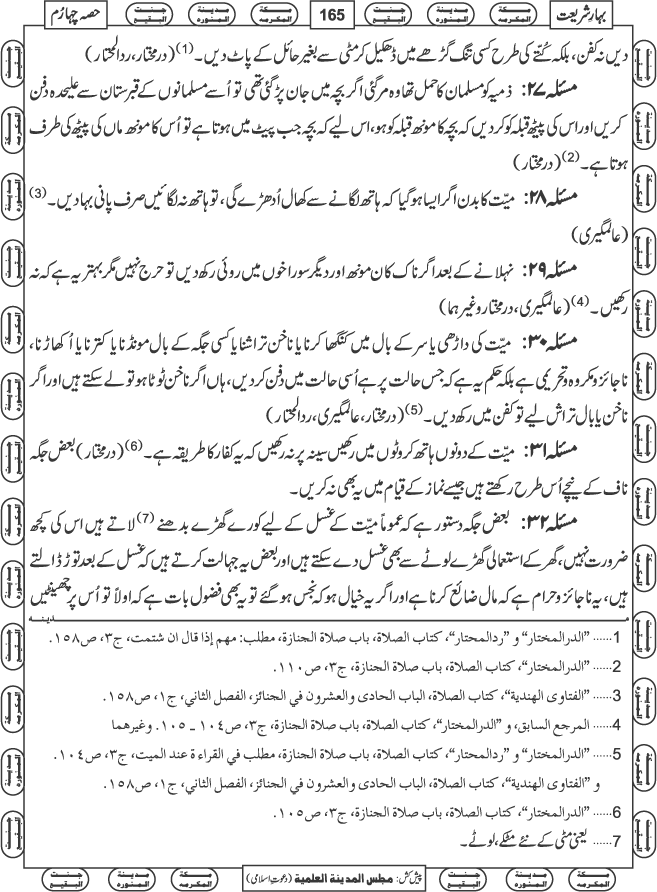 بہارِ شریعت
165
حصہ چہارم
مــكة المكرمة
مدينة المنوره
جنت البقيع
دیں نہ کفن، بلکہ کُتّے کی طرح کسی تنگ گڑھے میں ڈھکیل کر مٹی سے بغیر حائل کے پاٹ دیں۔(1) (درمختار، ردالمحتار)
مسئلہ ۲۷: ذمیہ کو مسلمان کا حمل تھا وہ مر گئی اگر بچہ میں جان پڑ گئی تھی تو اُسے مسلمانوں کے قبرستان سے علیٰحدہ دفن
کریں اور اس کی پیٹھ قبلہ کو کر دیں کہ بچہ کا مونھ قبلہ کو ہو، اس لیے کہ بچہ جب پیٹ میں ہوتا ہے تو اُس کا مونھ ماں کی پیٹھ کی طرف
ہوتا ہے۔(2) (درمختار)
مسئلہ ۲۸: میّت کا بدن اگر ایسا ہو گیا کہ ہاتھ لگانے سے کھال اُدھڑے گی، تو ہاتھ نہ لگائیں صرف پانی بہا دیں۔(3)
(عالمگیری)
مسئلہ ۲۹: نہلانے کے بعد اگر ناک کان مونھ اور دیگر سوراخوں میں روئی رکھ دیں تو حرج نہیں مگر بہتر یہ ہے کہ نہ
رکھیں۔(4) (عالمگیری، درمختار وغیرہما)
مسئلہ ۳۰: میّت کی داڑھی یا سر کے بال میں کنگھا کرنا یا ناخن تراشنا یا کسی جگہ کے بال مونڈنا یا کترنا یا اُکھاڑنا،
ناجائز و مکروہ و تحریمی ہے بلکہ حکم یہ ہے کہ جس حالت پر ہے اُسی حالت میں دفن کر دیں، ہاں اگر ناخن ٹوٹا ہو تو لے سکتے ہیں اور اگر
ناخن یا بال تراش لیے تو کفن میں رکھ دیں۔(5) (درمختار، عالمگیری، ردالمحتار)
مسئلہ ۳۱: میّت کے دونوں ہاتھ کروٹوں میں رکھیں سینہ پر نہ رکھیں کہ یہ کفار کا طریقہ ہے۔(6) (درمختار) بعض جگہ
ناف کے نیچے اُس طرح رکھتے ہیں جیسے نماز کے قیام میں یہ بھی نہ کریں۔
مسئلہ ۳۲: بعض جگہ دستور ہے کہ عموماً میّت کے غسل کے لیے کورے گھڑے بدھنے(7) لاتے ہیں اس کی کچھ
ضرورت نہیں، گھر کے استعمالی گھڑے لوٹے سے بھی غسل دے سکتے ہیں اور بعض یہ جہالت کرتے ہیں کہ غسل کے بعد توڑ ڈالتے
ہیں، یہ ناجائز و حرام ہے کہ مال ضائع کرنا ہے اور اگر یہ خیال ہو کہ نجس ہو گئے تو یہ بھی فضول بات ہے کہ اولاً تو اُس پر چھینٹیں
مدینه
1...... "الدرالمختار" و "ردالمحتار"، كتاب الصلاة، باب صلاة الجنازة، مطلب: مهم إذا قال ان شتمت، ج٣، ص١٥٨.
2...... "الدرالمختار"، كتاب الصلاة، باب صلاة الجنازة، ج٣، ص١١٠.
3...... "الفتاوى الهندية"، كتاب الصلاة، الباب الحادى والعشرون في الجنائز، الفصل الثاني، ج١، ص١٥٨.
4...... المرجع السابق، و "الدرالمختار"، كتاب الصلاة، باب صلاة الجنازة، ج٣، ص١٠٤ ـ ١٠٥. وغيرهما
5...... "الدرالمختار" و "ردالمحتار"، كتاب الصلاة، باب صلاة الجنازة، مطلب في القراءة عند الميت، ج٣، ص١٠٤.
و "الفتاوى الهندية"، كتاب الصلاة، الباب الحادى والعشرون في الجنائز، الفصل الثاني، ج١، ص١٥٨.
6...... "الدرالمختار"، كتاب الصلاة، باب صلاة الجنازة، ج٣، ص١٠٥.
7...... یعنی مٹی کے نئے مٹکے، لوٹے۔
پیش کش: مجلس المدينة العلمية (دعوتِ اسلامی)